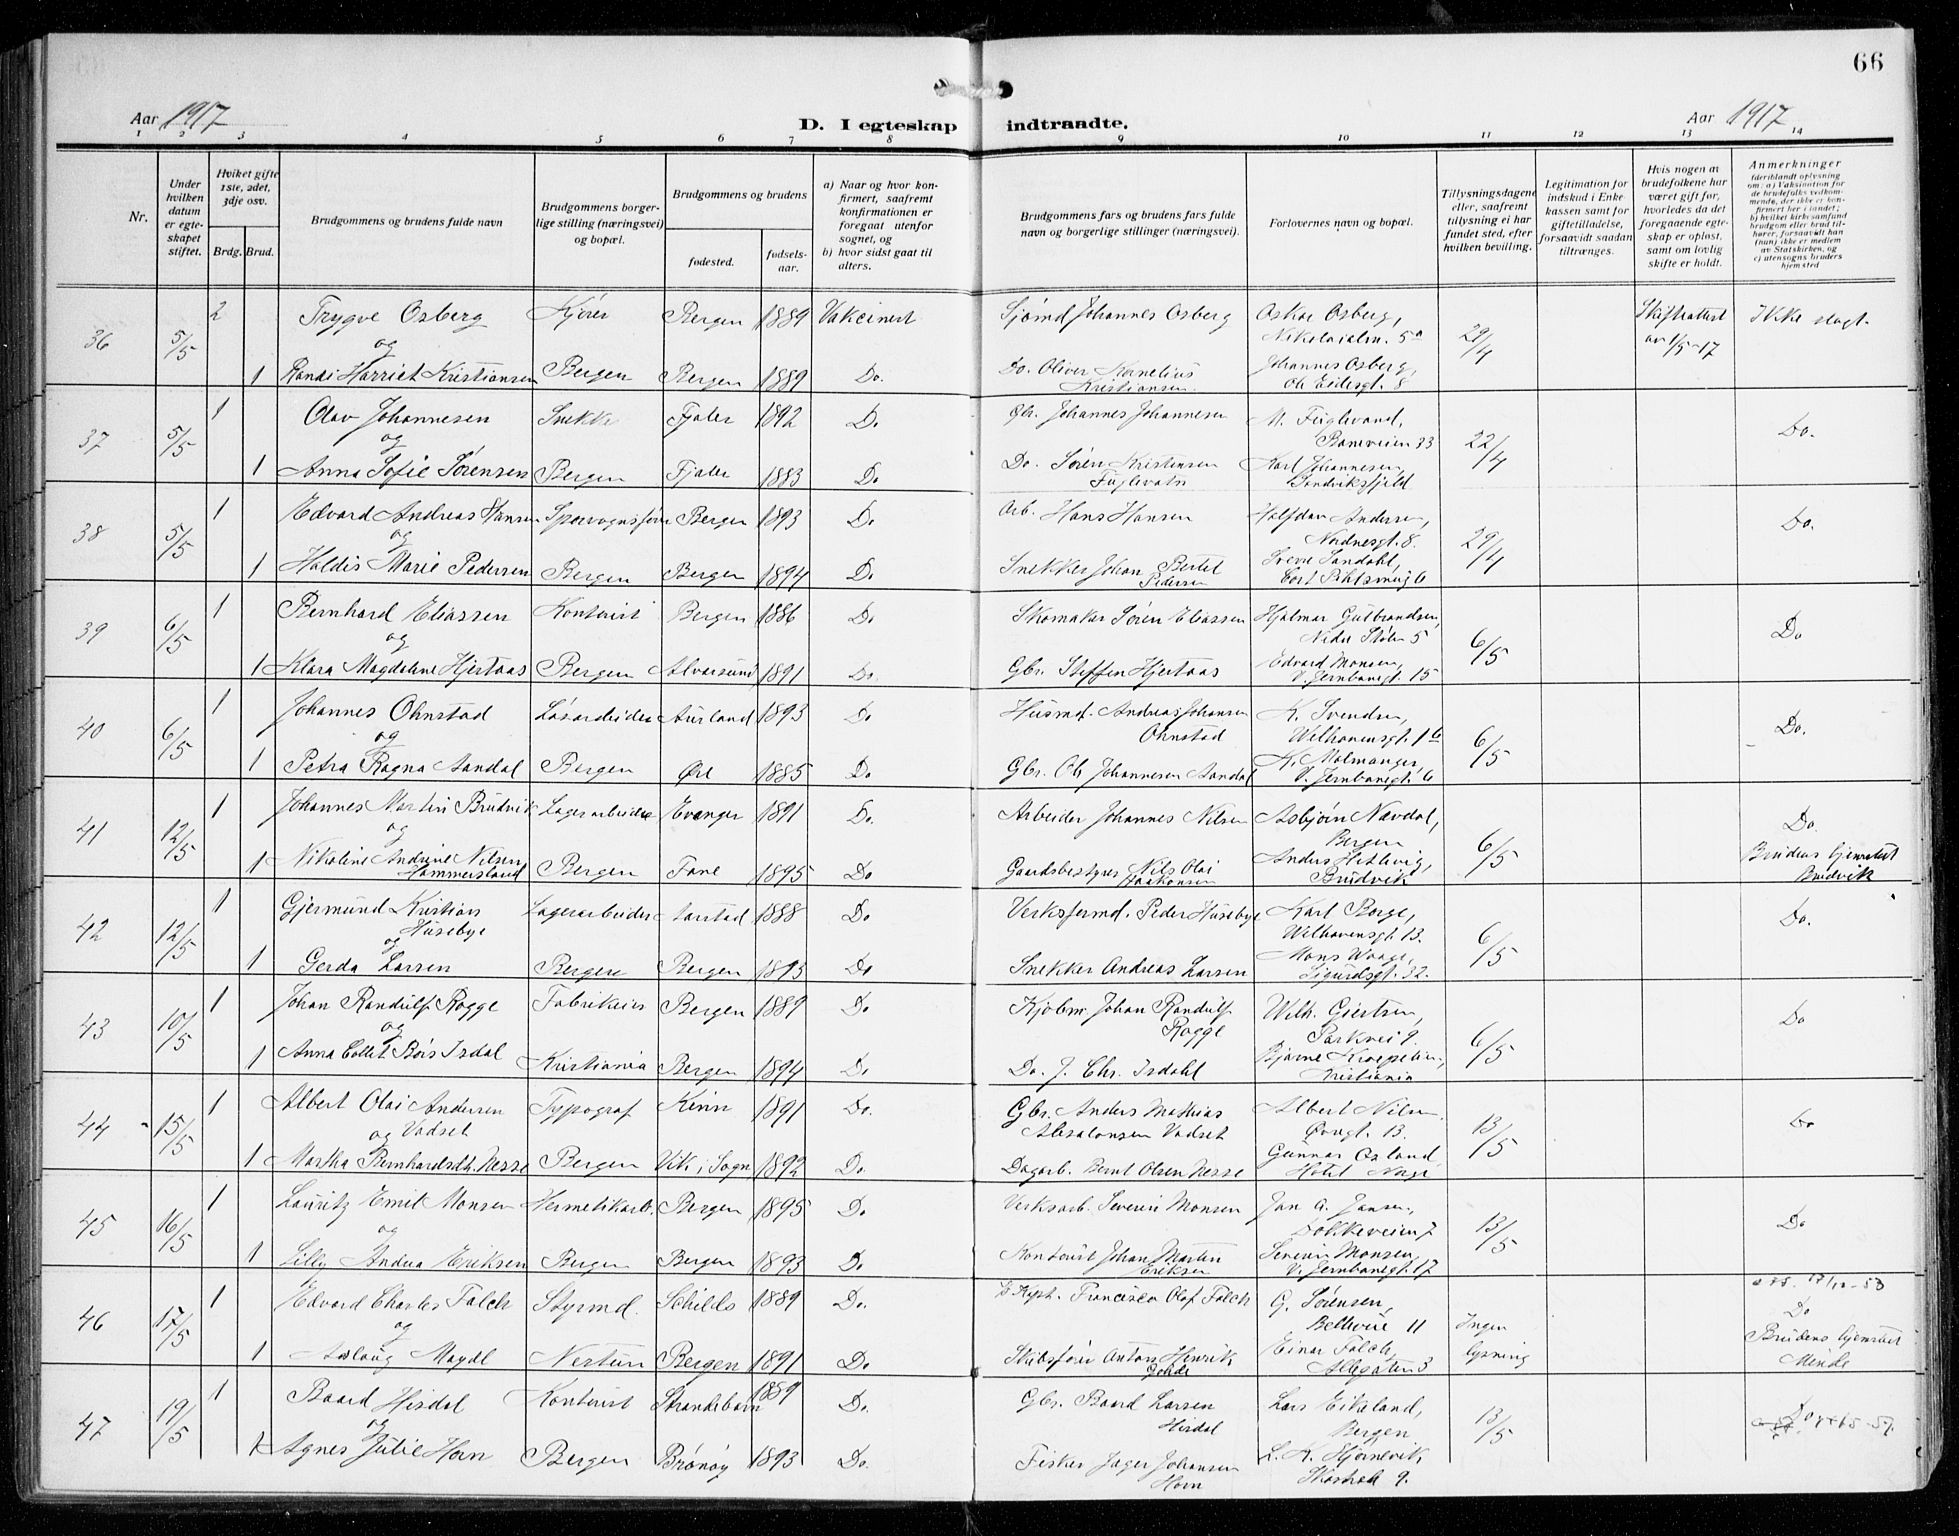 66
Aar 1917
D. I egteskap indtraadte.
Aar 1917
1 2 3 4 5 6 7 8 9 10 11 12 13 14
Nr.
Under hvilken datum er egteskapet stiftet.
Hviket gifte 1ste, 2det, 3dje osv.
Brdg. Brud.
Brudgommens og brudens fulde navn
Brudgommens borgerlige stilling (næringsvei) og bopæl.
Brudgommens og brudens
fødested.
fødselsaar.
a) Naar og hvor konfirmert, saafremt konfirmationen er foregaat utenfor sognet, og
b) hvor sidst gaat til alters.
Brudgommens fars og brudens fars fulde navn og borgerlige stillinger (næringsvei).
Forlovernes navn og bopæl.
Tillysningsdagene eller, saafremt tillysning ei har fundet sted, efter hvilken bevilling.
Legitimation for indskud i Enkekassen samt for giftetilladelse, forsaavidt saadan tiltrænges.
Hvis nogen av brudefolkene har været gift før, hvorledes da det foregaaende egteskap er opløst, samt om lovlig skifte er holdt.
Anmerkninger (deriblandt oplysning om: a) Vaksination for de brudefolks vedkommende, der ikke er konfirmert her i landet; b) hvilket kirkesamfund brudgom eller brud tilhører, forsaavidt han (hun) ikke er medlem av Statskirken, og c) utensogns bruders hjemsted
36 5/5 2 Trygve Osberg Kjører Bergen 1889 Vakcinert Sjømd Johannes Osberg Oskar Osberg, 29/4 Skifteattest Ikke slegt.
og Nikolaialm. 5a av 1/5-17
1 Randi Harriet Kristiansen Bergen Bergen 1889 Do. Do. Oliver Kornelius Johannes Osberg,
Kristiansen. 8
37 5/5 1 Olav Johannesen Snekker Fjaler 1892 Do Gbr. Johannes Johannesen M. Fuglevand, 22/4 Do.
og Baneveien 33
1 Anna Sofie Sørensen Bergen Fjaler 1883 Do Do. Søren Kristensen Karl Johannesen,
Fuglevatn Sandviksfjeld
38 5/5 1 Edvard Andreas Hansen Sporvognsfører Bergen 1893 Do Arb. Hans Hansen Halfdan Andersen, 29/4 Do.
og Nordnesgt. 8.
1 Haldis Marie Pedersen Bergen Bergen 1894 Do Snekker Johan Bertel Sverre Sandahl,
Pedersen
39 6/5 1 Bernhard Eliassen Kontorist Bergen 1886 Do Skomaker Søren Eliassen Hjalmar Gulbrandsen, 6/5 Do
og Nedre Stølen 5
1 Klara Magdalene Hjertaas Bergen Alversund 1891 Do. Gbr. Steffen Hjertaas Edvard Monsen,
V. Jernbanegt. 15
40 6/5 1 Johannes Ohnstad Løsarbeider Aurland 1893 Do Husmd. Andreas Johansen K. Svendsen, 6/5 Do.
og Ohnstad Welhavensgt. 1b
1 Petra Ragna Aandal Bergen Øre 1885 Do Gbr. Ole Johannesen Aandal K. Malmanger
V. Jernbanegt. 6
41 12/5 1 Johannes Martin Brudvik Lagerarbeider Evanger 1891 Do. Arbeider Johannes Nilsen Asbjørn Nævdal, 6/5 Do.
og Bergen
1 Nikoline Andrine Nilsen Bergen Fane 1895 Do Gaardsbestyrer Nils Olai Anders Hetlevig, Brudens hjemsted
Hammersland Jaakonsen Brudvik Brudvik
42 12/5 1 Gjermund Kristian Lagerarbeider Aarstad 1888 Do Verksformd. Peder Husebye Karl Borge, 6/5 Do.
Husebye Welhavensgt. 13.
og
1 Gerda Larsen Bergen Bergen 1893 Do Snekker Andreas Larsen Mons Waage,
Sigurdsgt. 22.
43 10/5 1 Johan Randulf Rogge Fabrikeier Bergen 1889 Do Kjøbm. Johan Randulf Wilh. Giertsen, 6/5 Do
og Rogge Parkvei 9.
1 Anna Collet Bøis Isdal Kristiania Bergen 1894 Do Do. J. Chr. Isdahl Bjarne Kroepelien,
Kristiania
44 15/5 1 Albert Olai Andersen Typograf Kinn 1891 Do. Gbr. Anders Mathias Albert Nilsen 13/5 Do
og Vadset Absalonsen Vadset Øvregt. 13.
1 Martha Bernhardsdtr. Nesse Bergen Vik i Sogn 1892 Do. Dagarb. Bernt Olsen Nesse Gunnar Osland,
Hotel Norge
45 16/5 1 Lauritz Emil Monsen Hermetikarb. Bergen 1895 Do Verksarb. Severin Monsen Jan A. Jansen, 13/5 Do
og Dokkeveien 7
1 Lilly Andrea Eriksen Bergen Bergen 1893 Do Kontorist Johan Martin Severin Monsen,
Eriksen V. Jernbanegt. 17
46 17/5 1 Edvard Charles Falch Styrmd. Schilds 1889 Do. Kapt. Francisco Olaf Falch G. Sørensen, Ingen Do
og Bellevue 11 lysning
1 Aslaug Magdl Nestun Bergen 1891 Do Skibsfører Anton Henrik Einar Falch, Brudens hjemsted
Gohde Allegaten 3 Minde
47 19/5 1 Baard Hisdal Kontorist Strandebarm 1889 Do. Gbr. Baard Larsen Lars Eikeland, 13/5 Do
og Hisdal Bergen
1 Agnes Julie Horn Bergen Brønøy 1893 Do. Fisker Jager Johansen L. K. Hjørnevik
Horn 9.